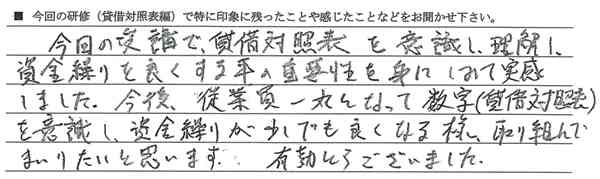 ■ 今回の研修（貸借対照表編）で特に印象に残ったことや感じたことなどをお聞かせ下さい。
今回の受講で、貸借対照表を意識し、理解し、
資金繰りを良くする事の重要性を身にしみて実感
しました。今後、従業員一丸となって数字(貸借対照表)
を意識し、資金繰りが少しでも良くなる様、取り組んで
まいりたいと思います。有難とうございました。